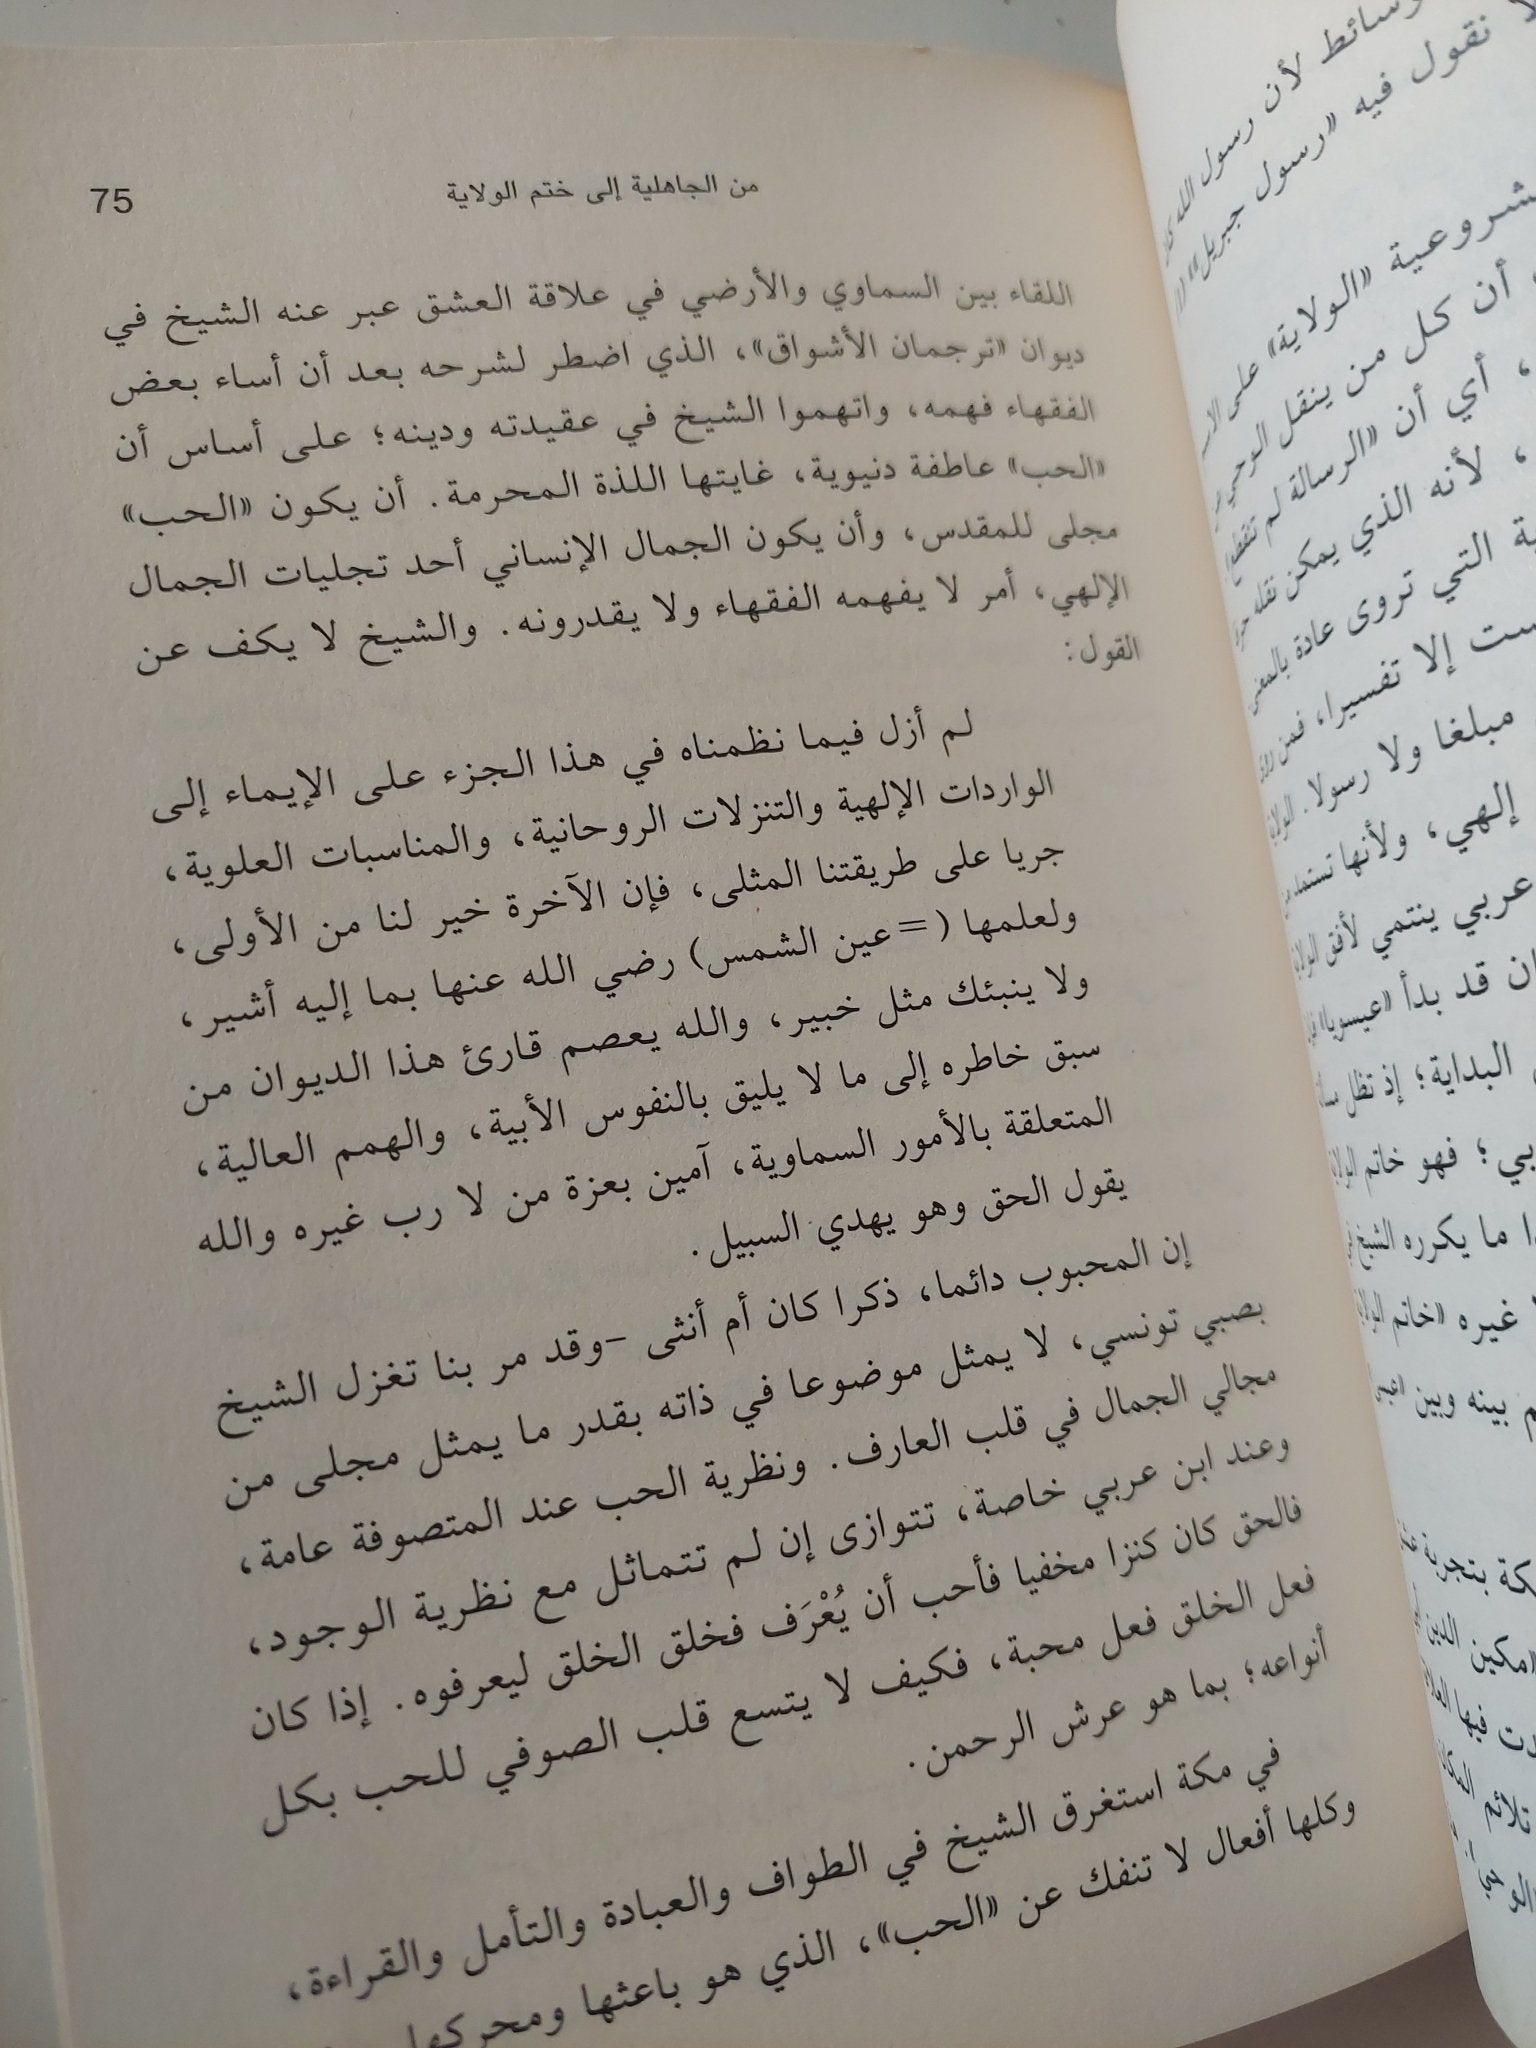 من الجاهلية إلى ختم الولاية
75
اللقاء بين السماوي والأرضي في علاقة العشق عبر عنه الشيخ في
ديوان «ترجمان الأشواق»، الذي اضطر لشرحه بعد أن أساء بعض
الفقهاء فهمه، واتهموا الشيخ في عقيدته ودينه؛ على أساس أن
«الحب» عاطفة دنيوية، غايتها اللذة المحرمة. أن يكون «الحب»
مجلى للمقدس، وأن يكون الجمال الإنساني أحد تجليات الجمال
الإلهي، أمر لا يفهمه الفقهاء ولا يقدرونه. والشيخ لا يكف عن
القول:
لم أزل فيما نظمناه في هذا الجزء على الإيماء إلى
الواردات الإلهية والتنزلات الروحانية، والمناسبات العلوية،
جريا على طريقتنا المثلى، فإن الآخرة خير لنا من الأولى،
ولعلمها (=عين الشمس) رضي الله عنها بما إليه أشير،
ولا ينبئك مثل خبير، والله يعصم قارئ هذا الديوان من
سبق خاطره إلى ما لا يليق بالنفوس الأبية، والهمم العالية،
المتعلقة بالأمور السماوية، آمين بعزة من لا رب غيره والله
يقول الحق وهو يهدي السبيل.
إن المحبوب دائما، ذكرا كان أم أنثى -وقد مر بنا تغزل الشيخ
بصبي تونسي، لا يمثل موضوعا في ذاته بقدر ما يمثل مجلى من
مجالي الجمال في قلب العارف. ونظرية الحب عند المتصوفة عامة،
وعند ابن عربي خاصة، تتوازى إن لم تتماثل مع نظرية الوجود،
فالحق كان كنزا مخفيا فأحب أن يُعْرَف فخلق الخلق ليعرفوه. إذا كان
فعل الخلق فعل محبة، فكيف لا يتسع قلب الصوفي للحب بكل
أنواعه؛ بما هو عرش الرحمن.
في مكة استغرق الشيخ في الطواف والعبادة والتأمل والقراءة،
وكلها أفعال لا تنفك عن «الحب»، الذي هو باعثها ومحركها
لأن رسول الله
لا نقول فيه «رسول جبريل»
«الولاية» على
أن كل من ينقل الوحي
، أي أن «الرسالة لم تنقطع
، لأنه الذي يمكن نقله
التي تروى عادة بالمعنى
إلا تفسيرا، فمن
مبلغا ولا رسولا.
إلهي، ولأنها
عربي ينتمي لأفق
قد بدأ «عيسويا»
البداية؛ إذ تظل
؛ فهو خاتم
ما يكرره الشيخ
غيره «خاتم
بينه وبين
بتجربة
«مكين الدين
فيها
تلائم